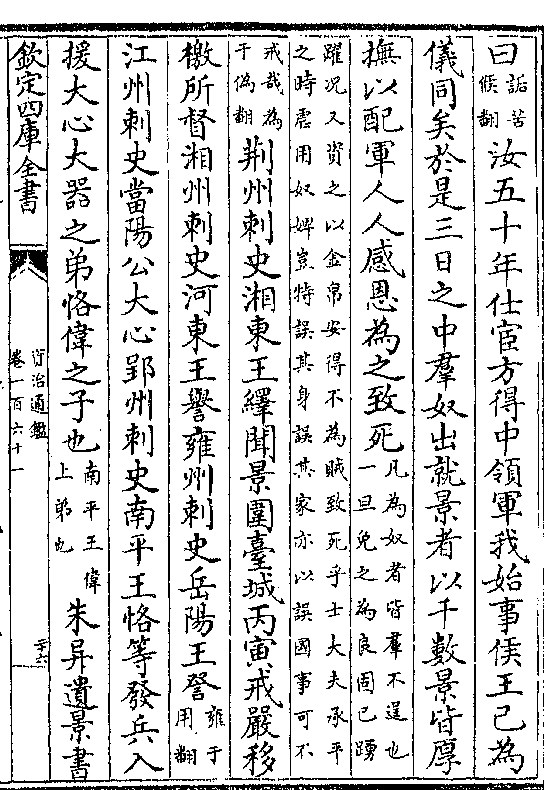 曰詬苦候翻汝五十年仕宦方得中領軍我始事侯王已為
儀同矣於是三日之中羣奴出就景者以千數景皆厚
撫以配軍人人感恩為之致死凡為奴者皆羣不逞也一旦免之為良固已踴
躍況又資之以金帛安得不為賊致死乎士大夫承平
之時虐用奴婢豈特誤其身誤其家亦以誤國事可不
戒哉為于偽翻荆州刺史湘東王繹聞景圍臺城丙寅戒嚴移
檄所督湘州刺史河東王譽雍州刺史岳陽王詧雍于用翻
江州刺史當陽公大心郢州刺史南平王恪等發兵入
援大心大器之弟恪偉之子也南平王偉上弟也朱异遺景書
欽定四庫全書
資治通鑑
卷一百六十一
二十六